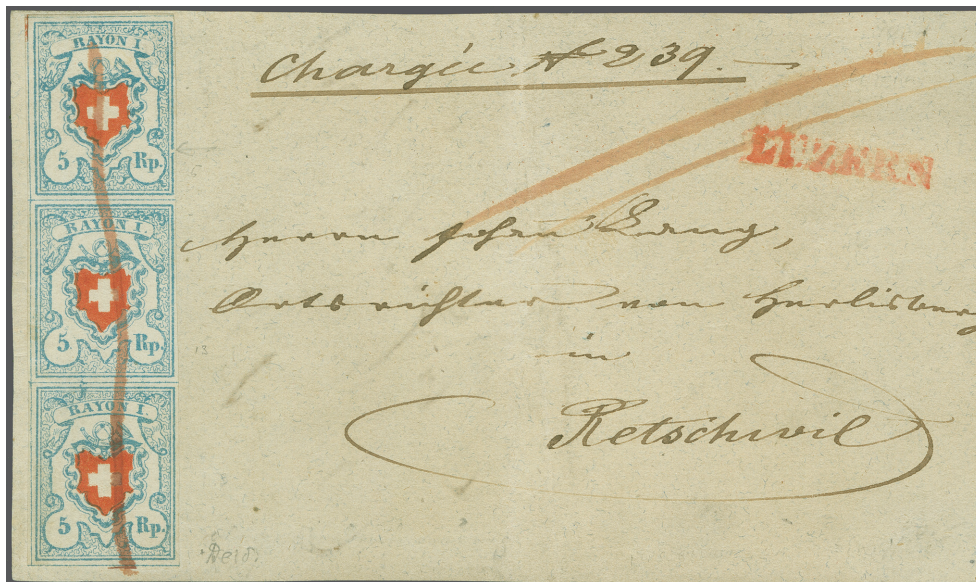 RAYON I.
5 Rp.
RAYON I.
5 Rp.
RAYON I.
5 Rp.
Chargée № 239.
LUZERN
Herrn Johan Lang,
Ortsrichter von Herlisberg
in
Retschwil
13